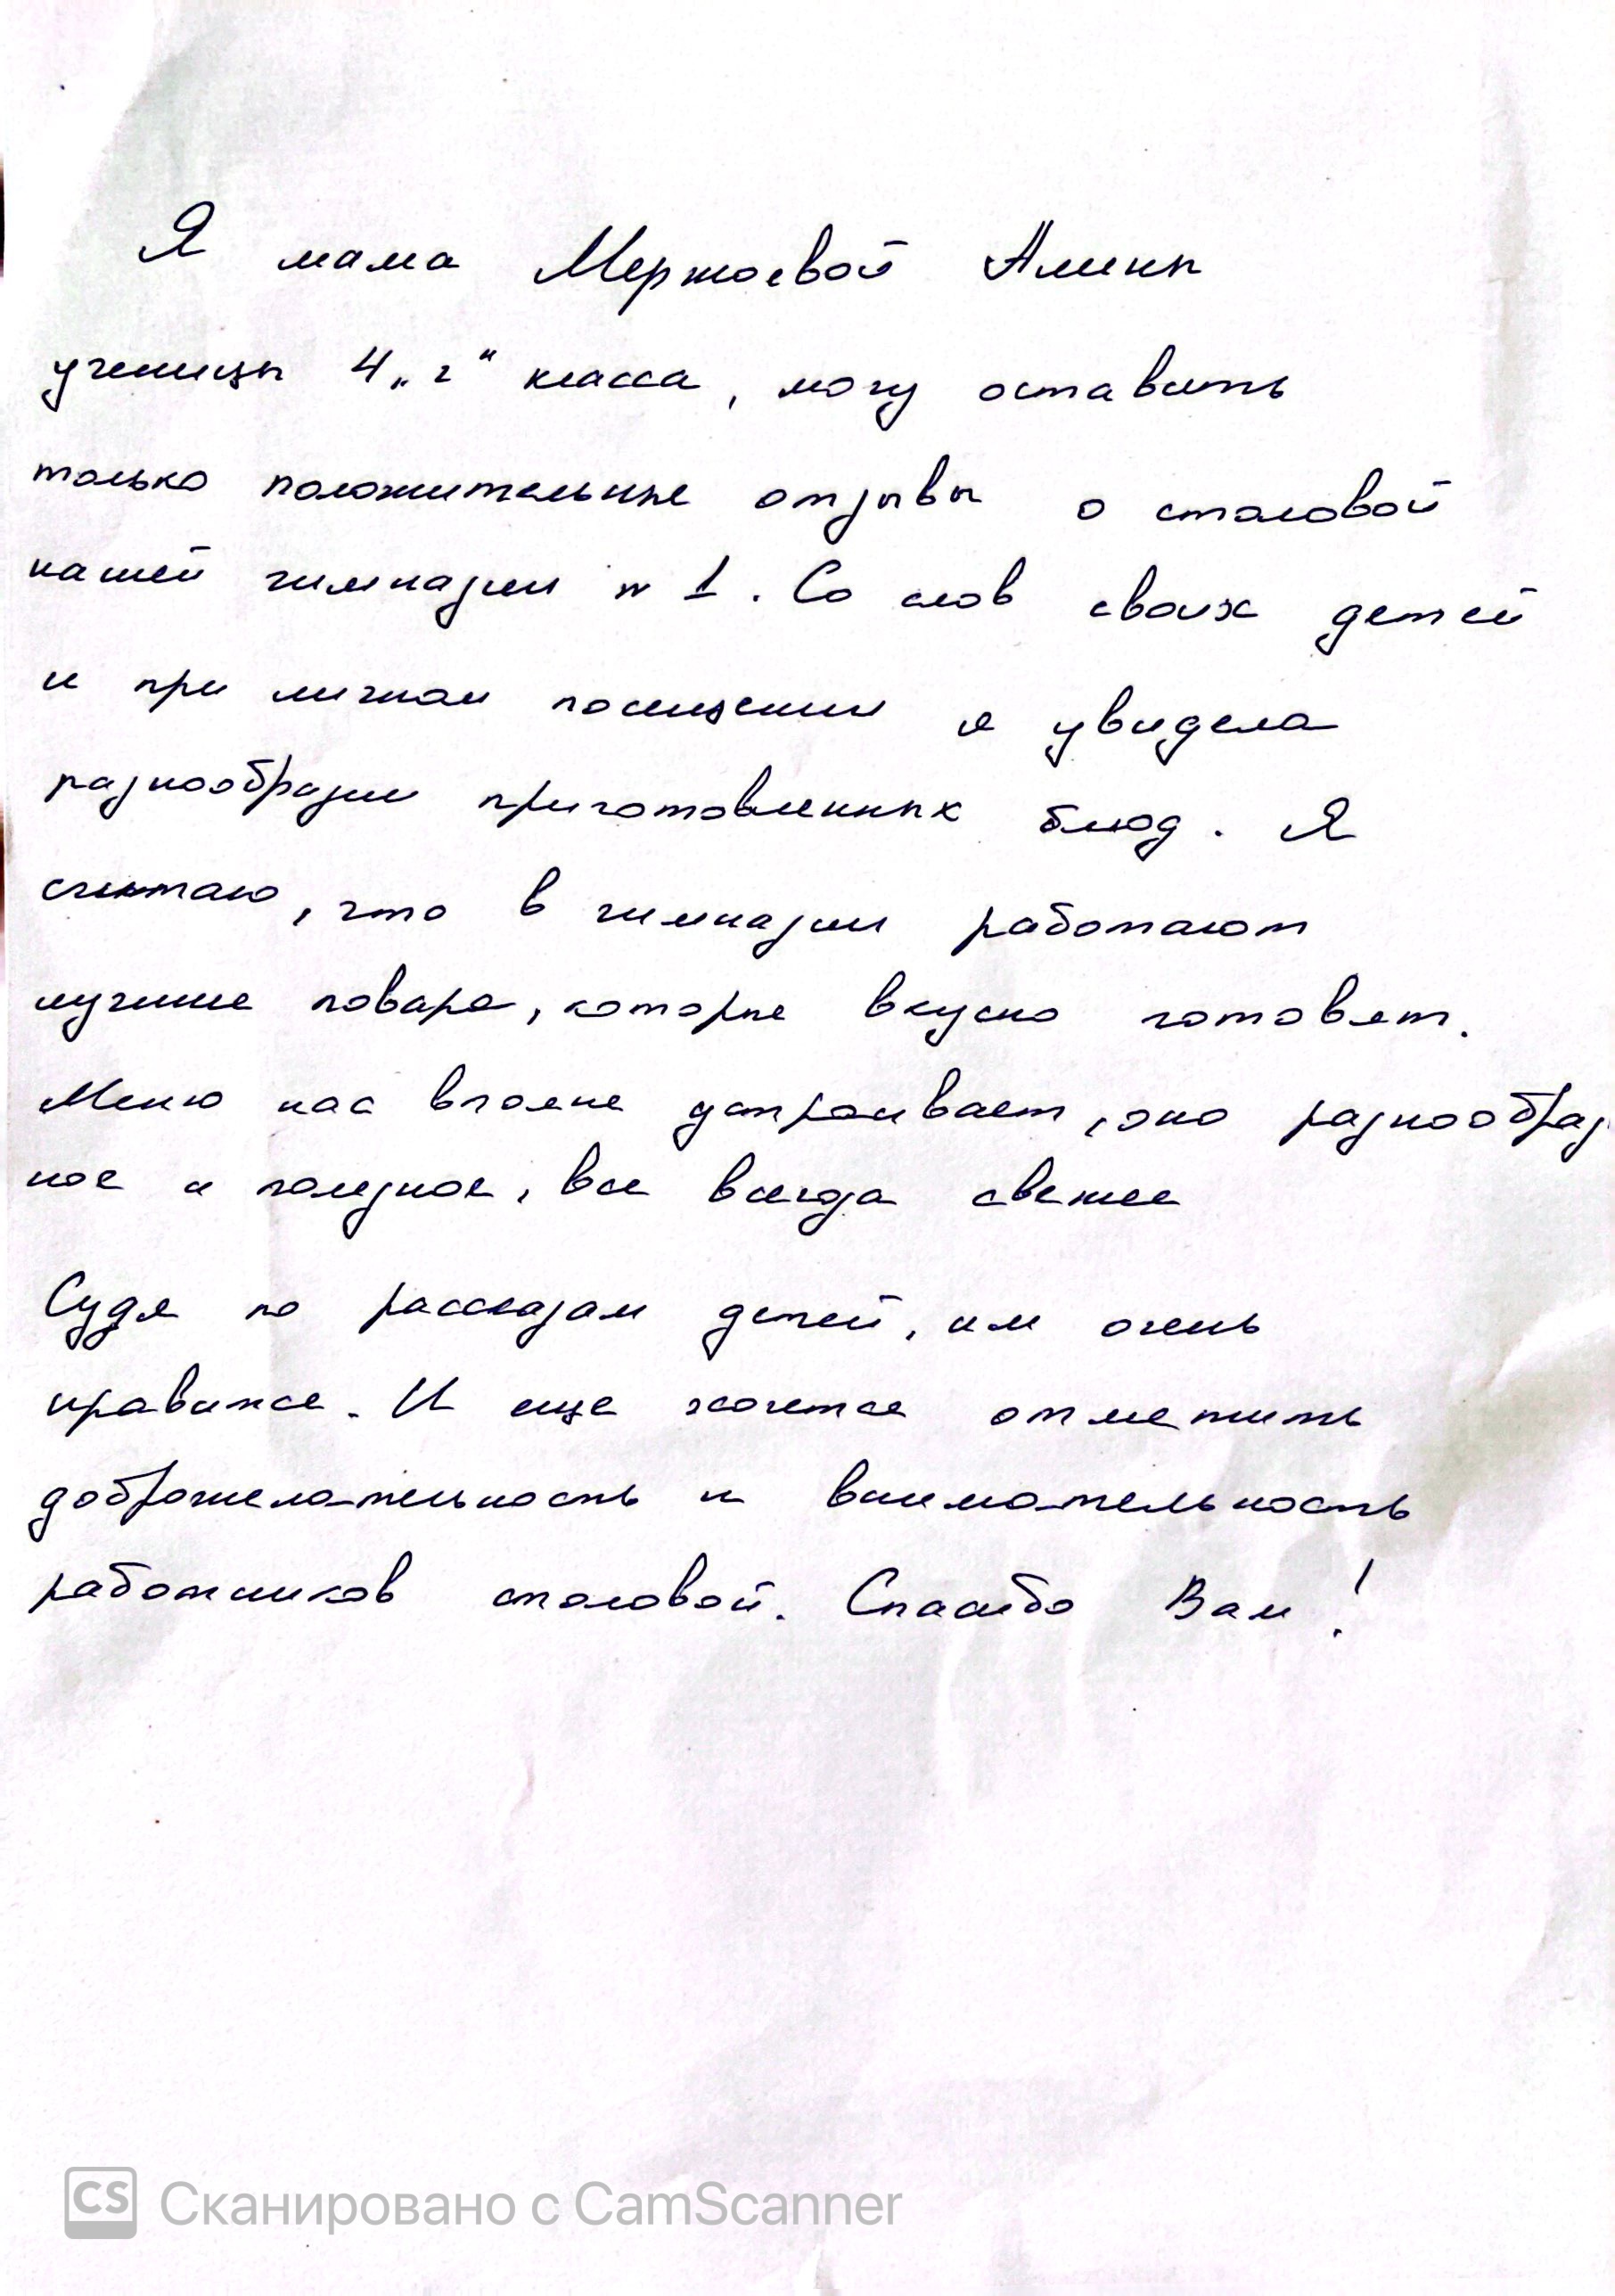 Я мама Мержоевой Амины
ученицы 4 „г" класса, могу оставить
только положительные отзывы о столовой
нашей гимназии № 1. Со слов своих детей
и при личном посещении я увидела
разнообразии приготовленных блюд. Я
считаю, что в гимназии работают
лучшие повара, которые вкусно готовят.
Меню нас вполне устраивает, оно разнообраз
ное и полезное, все всегда свежее
Судя по рассказам детей, им очень
нравится. И еще хочется отметить
доброжелательность и внимательность
работников столовой. Спасибо Вам!
CS Сканировано с CamScanner